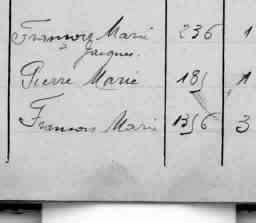 François Marie 236 1
à Jacques.
Pierre Marie 185 1
François Marie 1356 3